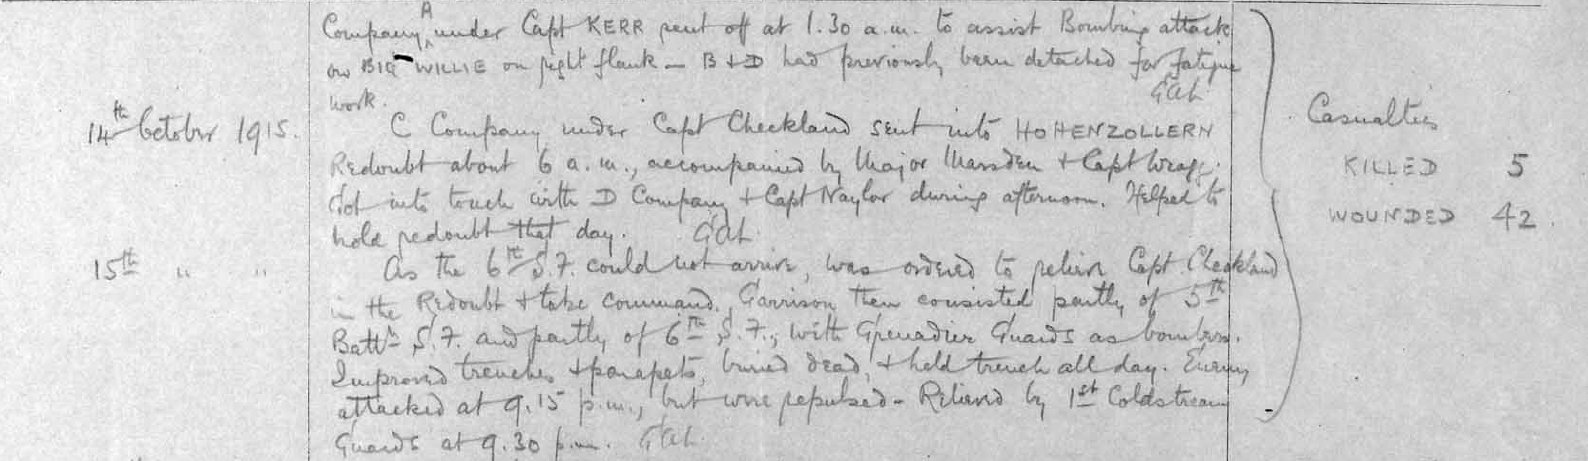 Company A under Capt KERR sent off at 1.30 a.m. to assist Bombing attack
on BIG WILLIE on right flank - B + D had previously been detached for fatigue
work. GAL
14th October 1915. C Company under Capt Checkland sent into HOHENZOLLERN
Redoubt about 6 a.m., accompanied by Major Marsden + Capt Wragg.
Got into touch with D Company + Capt Naylor during afternoon. Helped to
hold redoubt that day. GAL
15th " " As the 6th S.F. could not arrive, was ordered to relieve Capt Checkland
in the Redoubt + take command. Garrison then consisted partly of 5th
Battn S.F. and partly of 6th S.F., with Grenadier Guards as bombers.
Improved trenches + parapets, buried dead, + held trench all day. Enemy
attacked at 9.15 p.m., but were repulsed - Relieved by 1st Coldstream
Guards at 9.30 p.m. GAL
Casualties
KILLED 5
WOUNDED 42.